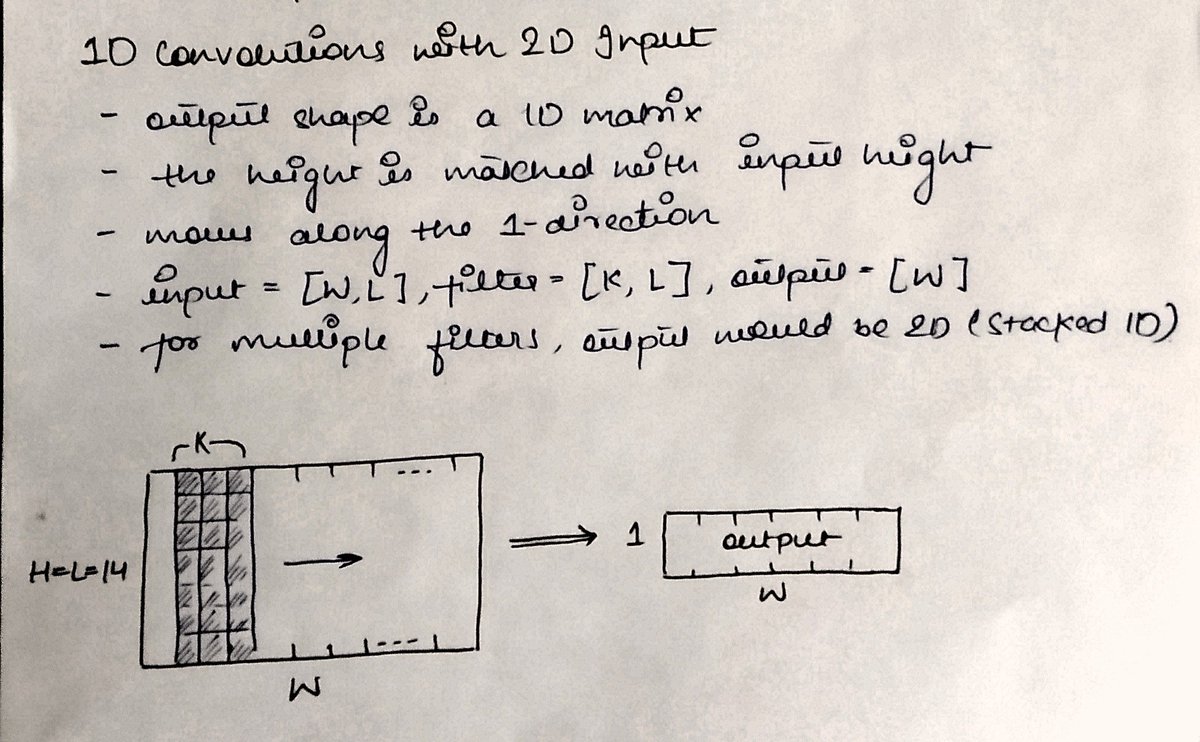 1D Convolutions with 2D Input
- output shape is a 1D matrix
- the height is matched with input height
- moves along the 1-direction
- input = [W, L], filter = [K, L], output = [W]
- for multiple filters, output would be 2D (stacked 1D)
K
...
H=L=14
1
output
W
...
W